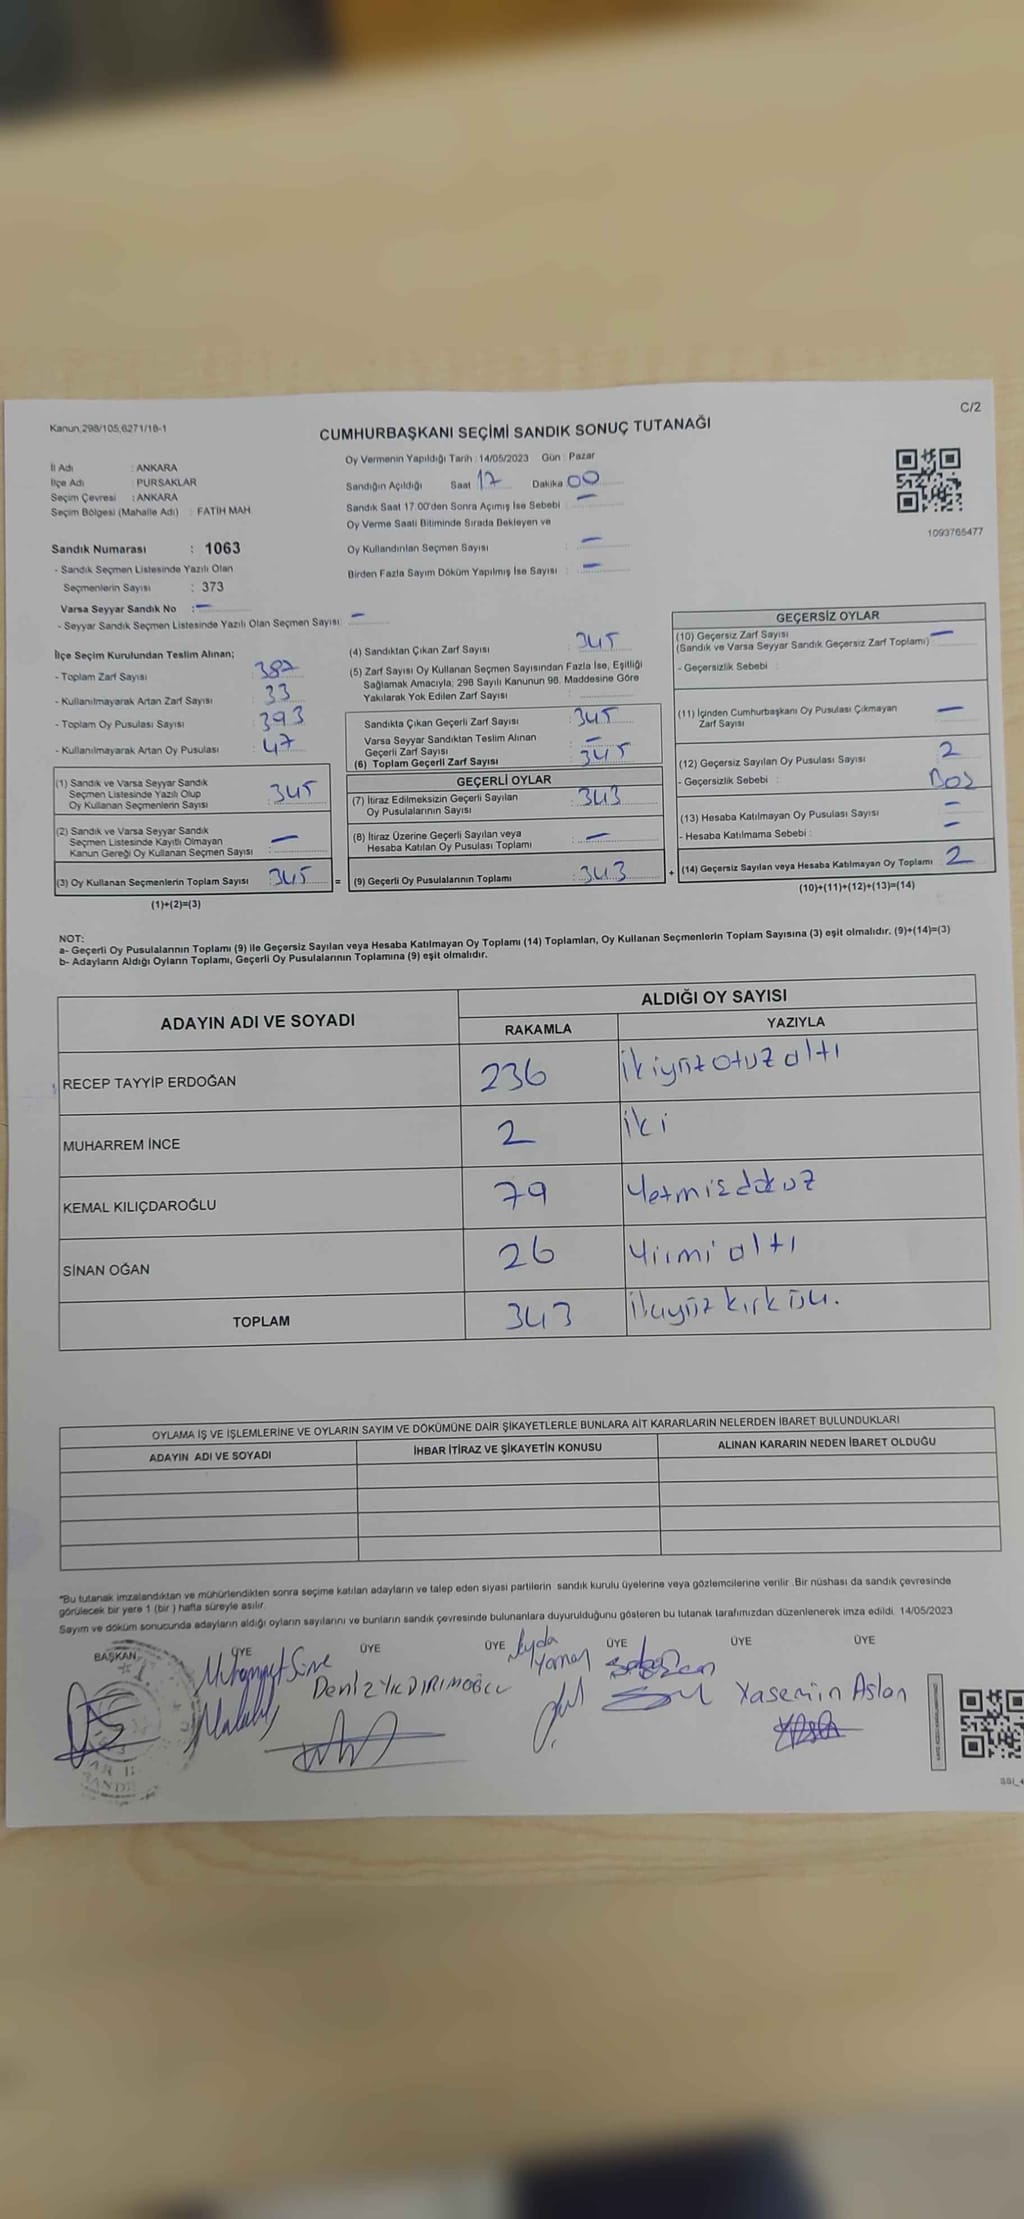 C/2
Kanun,298/105,6271/18-1
CUMHURBAŞKANI SEÇİMİ SANDIK SONUÇ TUTANAĞI
İl Adı : ANKARA
İlçe Adı : PURSAKLAR
Seçim Çevresi : ANKARA
Seçim Bölgesi (Mahalle Adı) : FATİH MAH
Sandık Numarası : 1063
- Sandık Seçmen Listesinde Yazılı Olan
Seçmenlerin Sayısı : 373
Varsa Seyyar Sandık No : –
- Seyyar Sandık Seçmen Listesinde Yazılı Olan Seçmen Sayısı: –
Oy Vermenin Yapıldığı Tarih : 14/05/2023 Gün : Pazar
Sandığın Açıldığı Saat 17 Dakika 00
Sandık Saat 17.00'den Sonra Açımış İse Sebebi : –
Oy Verme Saati Bitiminde Sırada Bekleyen ve
Oy Kullandırılan Seçmen Sayısı : –
Birden Fazla Sayım Döküm Yapılmış İse Sayısı : –
1093765477
İlçe Seçim Kurulundan Teslim Alınan;
- Toplam Zarf Sayısı : 382
- Kullanılmayarak Artan Zarf Sayısı : 33
- Toplam Oy Pusulası Sayısı : 393
- Kullanılmayarak Artan Oy Pusulası : 47
(1) Sandık ve Varsa Seyyar Sandık
Seçmen Listesinde Yazılı Olup
Oy Kullanan Seçmenlerin Sayısı : 345
(2) Sandık ve Varsa Seyyar Sandık
Seçmen Listesinde Kayıtlı Olmayan
Kanun Gereği Oy Kullanan Seçmen Sayısı : –
(3) Oy Kullanan Seçmenlerin Toplam Sayısı : 345 =
(1)+(2)=(3)
(4) Sandıktan Çıkan Zarf Sayısı : 345
(5) Zarf Sayısı Oy Kullanan Seçmen Sayısından Fazla İse, Eşitliği
Sağlamak Amacıyla; 298 Sayılı Kanunun 98. Maddesine Göre
Yakılarak Yok Edilen Zarf Sayısı :
Sandıkta Çıkan Geçerli Zarf Sayısı : 345
Varsa Seyyar Sandıktan Teslim Alınan
Geçerli Zarf Sayısı : –
(6) Toplam Geçerli Zarf Sayısı : 345
GEÇERLİ OYLAR
(7) İtiraz Edilmeksizin Geçerli Sayılan
Oy Pusulalarının Sayısı : 343
(8) İtiraz Üzerine Geçerli Sayılan veya
Hesaba Katılan Oy Pusulası Toplamı : –
(9) Geçerli Oy Pusulalarının Toplamı : 343 +
GEÇERSİZ OYLAR
(10) Geçersiz Zarf Sayısı
(Sandık ve Varsa Seyyar Sandık Geçersiz Zarf Toplamı) –
- Geçersizlik Sebebi :
(11) İçinden Cumhurbaşkanı Oy Pusulası Çıkmayan
Zarf Sayısı –
(12) Geçersiz Sayılan Oy Pusulası Sayısı : 2
- Geçersizlik Sebebi : Boş
(13) Hesaba Katılmayan Oy Pusulası Sayısı : –
- Hesaba Katılmama Sebebi : –
(14) Geçersiz Sayılan veya Hesaba Katılmayan Oy Toplamı : 2
(10)+(11)+(12)+(13)=(14)
NOT:
a- Geçerli Oy Pusulalarının Toplamı (9) ile Geçersiz Sayılan veya Hesaba Katılmayan Oy Toplamı (14) Toplamları, Oy Kullanan Seçmenlerin Toplam Sayısına (3) eşit olmalıdır. (9)+(14)=(3)
b- Adayların Aldığı Oyların Toplamı, Geçerli Oy Pusulalarının Toplamına (9) eşit olmalıdır.
ADAYIN ADI VE SOYADI ALDIĞI OY SAYISI
RAKAMLA YAZIYLA
RECEP TAYYİP ERDOĞAN 236 İkiyüzotuzaltı
MUHARREM İNCE 2 iki
KEMAL KILIÇDAROĞLU 79 Yetmişdokuz
SİNAN OĞAN 26 Yirmi altı
TOPLAM 343 üçyüz kırk üç.
OYLAMA İŞ VE İŞLEMLERİNE VE OYLARIN SAYIM VE DÖKÜMÜNE DAİR ŞİKAYETLERLE BUNLARA AİT KARARLARIN NELERDEN İBARET BULUNDUKLARI
ADAYIN ADI VE SOYADI İHBAR İTİRAZ VE ŞİKAYETİN KONUSU ALINAN KARARIN NEDEN İBARET OLDUĞU
*Bu tutanak imzalandıktan ve mühürlendikten sonra seçime katılan adayların ve talep eden siyasi partilerin sandık kurulu üyelerine veya gözlemcilerine verilir .Bir nüshası da sandık çevresinde
görülecek bir yere 1 (bir ) hafta süreyle asılır.
Sayım ve döküm sonucunda adayların aldığı oyların sayılarını ve bunların sandık çevresinde bulunanlara duyurulduğunu gösteren bu tutanak tarafımızdan düzenlenerek imza edildi. 14/05/2023
BAŞKAN ÜYE ÜYE ÜYE ÜYE ÜYE ÜYE
Deniz YILDIRIMOĞLU
Yaman
Yasemin Aslan